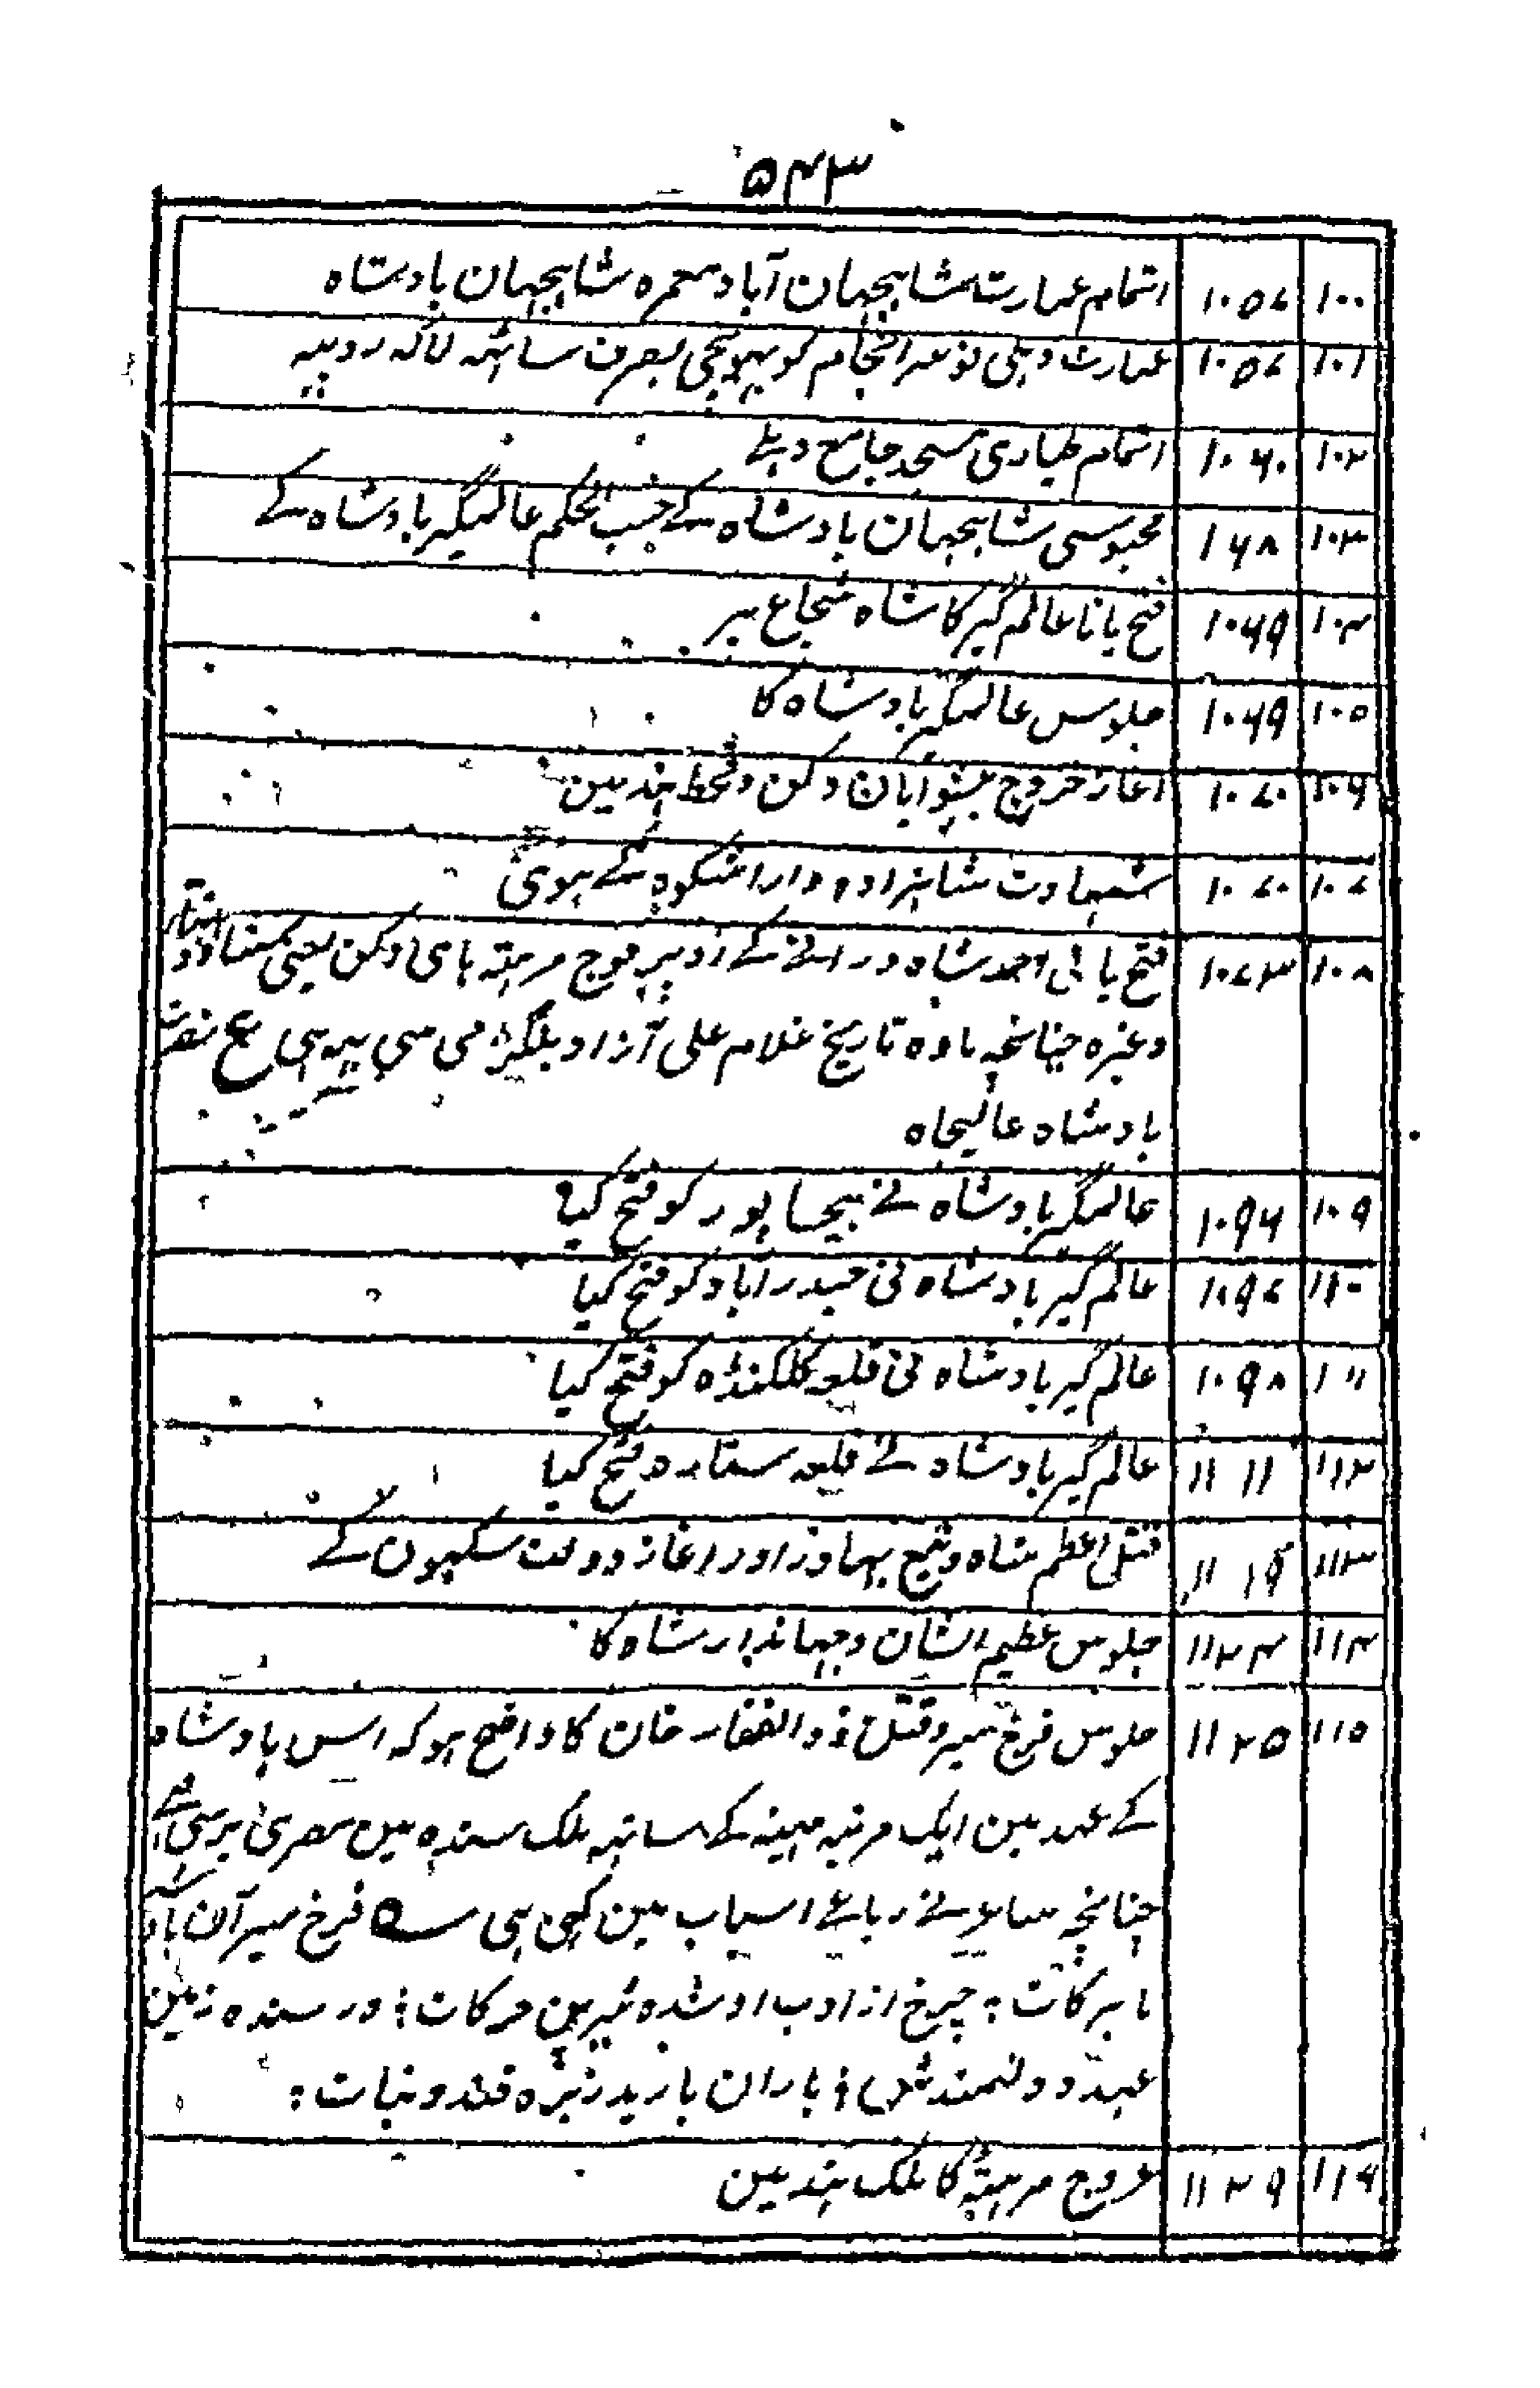 ۵۴۳
۱۰۰ ۱۰۵۷ اتمام عمارت شاہجہان آباد معمرہ شاہجہان بادشاہ
۱۰۱ ۱۰۵۷ عمارت دہلی نو سرانجام کو پہونچی بصرف ساٹھہ لاکہ روپیہ
۱۰۲ ۱۰۶۰ اتمام طیاری مسجد جامع دہلے
۱۰۳ ۱۶۸ محبوسی شاہجہان بادشاہ کے حسب الحکم عالمگیر بادشاہ کے
۱۰۴ ۱۰۶۹ فتح پانا عالم گیر کا شاہ شجاع پر
۱۰۵ ۱۰۶۹ جلوس عالمگیر بادشاہ کا
۱۰۶ ۱۰۷۰ اغاز خروج پیشوایان دکن و قحط ہند مین
۱۰۷ ۱۰۷۰ شہادت شاہزادہ دارا شکوہ کے ہوئی
۱۰۸ ۱۰۷۳ فتح یابی احمد شاہ درانے کے اوپر فوج مرہٹہ ہای دکن یعنی
وغیرہ چنانچہ مادہ تاریخ غلام علی آزاد بلگرامی سی یہ ہی ع نصرت
بادشاہ عالیجاہ
۱۰۹ ۱۰۹۶ عالمگیر بادشاہ نے بیجاپور کو فتح کیا
۱۱۰ ۱۰۹۷ عالم گیر بادشاہ نی حیدرآباد کو فتح کیا
۱۱۱ ۱۰۹۸ عالم گیر بادشاہ نی قلعہ گلکنڈہ کو فتح کیا
۱۱۲ ۱۱۱۱ عالم گیر بادشاہ نے قلعہ ستارہ فتح کیا
۱۱۳ ۱۱۱۹ قتل اعظم شاہ و تیغ بہادر اور اغاز دولت سکہون کے
۱۱۴ ۱۱۲۴ جلوس عظیم الشان و جہاندار شاہ کا
۱۱۵ ۱۱۲۵ جلوس فرخ سیر و قتل ذوالفقار خان کا واضح ہو کہ اس بادشاہ
کے عہد مین ایک مرتبہ مینہ کے ساتہہ ملک سندہ مین مصری برسی
چنانچہ شاعر نے رباعے اسباب مین کہی ہی فرخ سیر آن
بابرکات ؛ چرخ از ادب او شدہ شیرین حرکات ؛ در سندہ زمین
عہد دولتمندش ؛ باران بارید ریزہ قند و نبات ؛
۱۱۶ ۱۱۲۹ عروج مرہٹہ کا ملک ہند مین